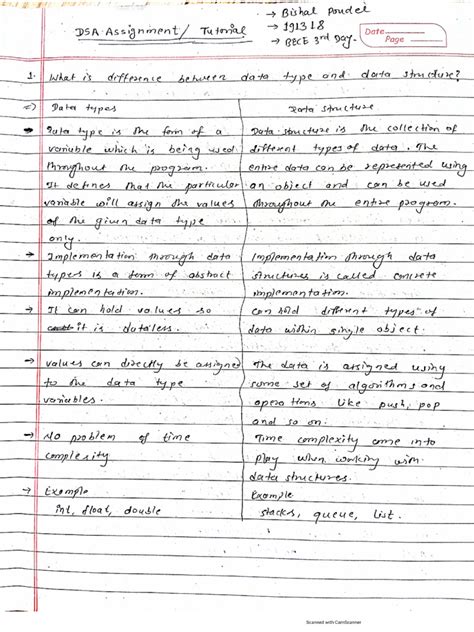 → Bishal Poudel
DSA Assignment / Tutorial → 191318
→ BECE 3rd Day.
Date
Page
1. What is difference between data type and data structure?
⇒ Data types Data structure
→ Data type is the form of a Data structure is the collection of
variable which is being used different types of data. The
throughout the program. entire data can be represented using
It defines that the particular an object and can be used
variable will assign the values throughout the entire program.
of the given data type
only.
→ Implementation through data Implementation through data
types is a form of abstract structures is called concrete
implementation. implementation.
→ It can hold values so Can hold different types of
it is dataless. data within single object.
→ values can directly be assigned The data is assigned using
to the data type some set of algorithms and
variables. operations like push, pop
and so on.
→ No problem of time Time complexity come into
complexity play when working with
data structures.
→ Example Example
int, float, double stacks, queue, list.
Scanned with CamScanner